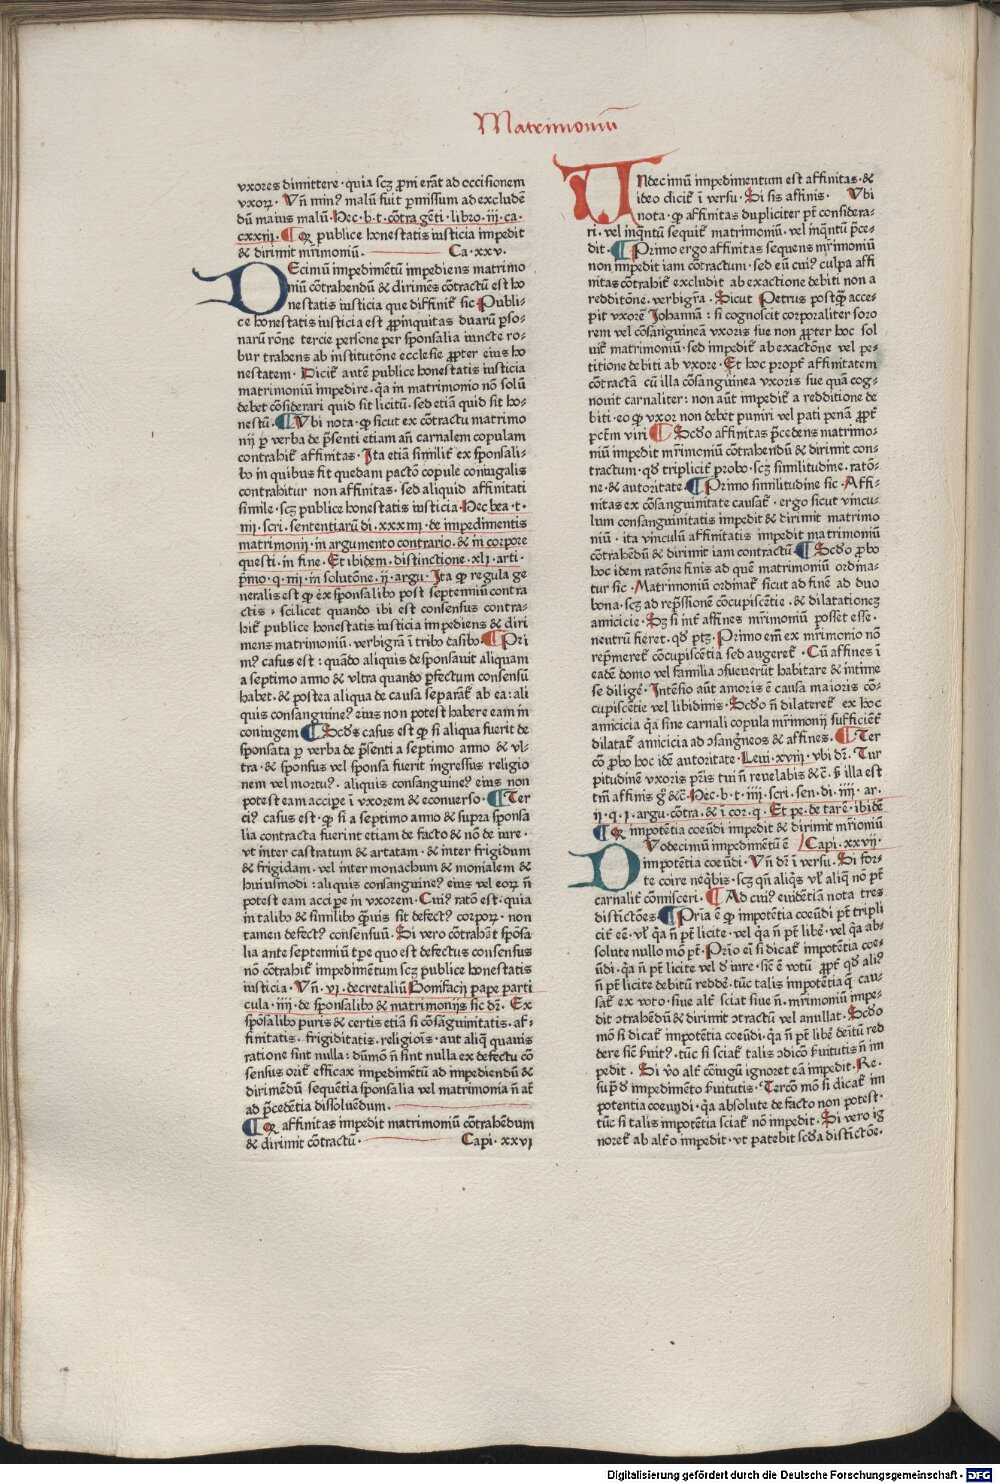 Matrimoniū
vxores dimittere · quia scꝫ p̄mi erāt ad occisionem
vxoꝝ · Vn̄ minꝰ malū fuit p̄missum ad excludē
dū maius malū · Hec · b · t · cōtra gēti · libro · iij · ca ·
cxxiij · ¶ Qꝙ publice honestatis iusticia impedit
& dirimit mr̄imoniū · Ca · xxv ·
DEcimū impedimētū impediens matrimo
niū cōtrahendū & dirimēs cōtractū est ho
nestatis iusticia que diffinit᷑ sic Publi-
ce honestatis iusticia est ꝓpinquitas duarū ꝑso-
narū rōne tercie persone per sponsalia iuncte ro-
bur trahens ab institutōne ecclesie ꝓpter eius ho
nestatem · Dicit᷑ autē publice honestatis iusticia
matrimoniū impedire · q̄a in matrimonio nō solū
debet cōsiderari quid sit licitū · sed etiā quid sit ho-
nestū · ¶ Vbi nota · ꝙ sicut ex cōtractu matrimo
nij ꝑ verba de p̄senti etiam an̄ carnalem copulam
contrahit᷑ affinitas · Ita etiā similit᷑ ex sponsali-
bꝰ in quibus fit quedam pactō copule coniugalis
contrahitur non affinitas · sed aliquid affinitati
simile · scꝫ publice honestatis iusticia · Hec bea · t ·
iiij · scri · sententiarū di · xxxiiij · de impedimentis
matrimonij · in argumento contrario · & in corpore
questi · in fine · Et ibidem · distinctione · xli · arti ·
p̄mo · q · iiij · in solutōne · ij · argu · Ita ꝙ regula ge
neralis est ꝙ ex sponsalibꝰ post septennium contra
ctis : scilicet quando ibi est consensus contra-
hit᷑ publice honestatis iusticia impediens & diri
mens matrimoniū · verbigrā ī tribꝰ casibꝰ · ¶ Pri
mꝰ casus est : quādo aliquis desponsauit aliquam
a septimo anno & vltra quando perfectum consensū
habet · & postea aliqua de causa separat᷑ ab ea : ali
quis consanguineꝰ eius non potest habere eam in
coniugem ¶ Scd̄s casus est ꝙ si aliqua fuerit de
sponsata ꝑ verba de p̄senti a septimo anno & vl-
tra · & sponsus vel sponsa fuerit ingressus religio
nem vel mortuꝰ · aliquis consanguineꝰ eius non
potest eam accipe i vxorem & econuerso · ¶ Ter
ciꝰ casus est · ꝙ si a septimo anno & supra sponsa
lia contracta fuerint etiam de facto & nō de iure ·
vt inter castratum & artatam · & inter frigidum
& frigidam · vel inter monachum & monialem &
huiusmodi : aliquis consanguineꝰ eius vel eoꝝ n̄
potest eam accipe in vxorem · Cuiꝰ ratō est · quia
in talibꝰ & similibꝰ q̄uis sit defectꝰ corpoꝝ · non
tamen defectꝰ consensuū · Si vero cōtrahēt spōsa
lia ante septenniū tꝑe quo est defectus consensus
nō cōtrahit᷑ impedimētum scꝫ publice honestatis
iusticia · Vn̄ · vi · decretaliū Bonifacij pape parti
cula · iiij · de sponsalibꝰ & matrimonijs sic dr̄ · Ex
spōsalibꝰ puris & certis etiā si cōsāguinitatis · af-
finitatis · frigiditatis · religiōis · aut aliq̄ quauis
ratione sint nulla : dūmō n̄ sint nulla ex defectu cō
sensus orit᷑ efficax impedimētū ad impediendū &
dirimēdū sequētia sponsalia vel matrimonia n̄ at᷑
ad p̄cedētia dissoluēdum ·
¶ Qꝙ affinitas impedit matrimoniū cōtrahēdum
& dirimit cōtractū · Capi · xxvi
UNdecimū impedimentum est affinitas · &
ideo dicit᷑ i versu · Si sis affinis · Vbi
nota · ꝙ affinitas dupliciter pt̄ considera-
ri · vel inq̄ntū sequit᷑ matrimoniū · vel inq̄ntū p̄ce-
dit · ¶ Primo ergo affinitas sequens mr̄imoniū
non impedit iam cōtractum · sed eū cuiꝰ culpa affi
nitas cōtrahit᷑ excludit ab exactione debiti non a
redditōne · verbigr̄a · Sicut Petrus postq̄ acce-
pit vxorē Johannā : si cognoscit corporaliter soro
rem vel cōsanguineā vxoris sue non ꝓpter hoc sol
uit᷑ matrimoniū · sed impedit᷑ ab exactōne vel pe-
titione debiti ab vxore · Et hoc propt᷑ affinitatem
cōtractā cū illa cōsanguinea vxoris sue quā cog-
nouit carnaliter : non aūt impedit᷑ a redditione de
biti · eo ꝙ vxor non debet puniri vel pati penā ꝓpt᷑
pctm̄ viri ¶ Scd̄o affinitas p̄cedens matrimo-
niū impedit mr̄imoniū cōtrahēdū & dirimit con-
tractum · qd̄ triplicit᷑ probo · scꝫ similitudine · ratō-
ne · & autoritate · ¶ Primo similitudine sic · Affi-
nitas ex cōsanguinitate causat᷑ · ergo sicut vincu-
lum consanguinitatis impedit & dirimit matrimo
niū · ita vinculū affinitatis impedit matrimoniū
cōtrahēdū & dirimit iam contractū · ¶ Scd̄o ꝓbo
hoc idem ratōne finis ad quē matrimoniū ordina-
tur sic · Matrimoniū ordinat᷑ sicut ad finē ad duo
bona · scꝫ ad rep̄ssionē cōcupiscētie · & dilatationeꝫ
amicicie · Sꝫ si int᷑ affines mr̄imoniū posset esse ·
neutrū fieret · qd̄ ptꝫ · Primo em̄ ex mr̄imonio nō
rep̄meret᷑ cōcupiscētia sed augeret᷑ · Cū affines ī
eadē domo vel familia ꝯsueuerūt habitare & intime
se diligē · Intēsio aūt amoris ē causa maioris cō-
cupiscētie vel libidinis · Scd̄o n̄ dilataret᷑ ex hoc
amicicia q̄a sine carnali copula mr̄imonij sufficiēt᷑
dilatat᷑ amicicia ad ꝯsāgineos & affines · ¶ Ter
cō ꝓbo hoc idē autoritate · Leui · xviij · vbi dr̄ · Tur
pitudinē vxoris pr̄is tui n̄ reuelabis &c̄ · ꝭ illa est
tm̄ affinis g̊ &c̄ · Hec · b · t · iiij · scri · sen · di · iiij · ar ·
ij · q · i · argu · cōtra · & i cor · q · Et pe · de tarē · ibidē
¶ Qꝙ impotētia coeūdi impedit & dirimit mr̄ioniū
DVodecimū impedimētū ē Capi · xxvij ·
impotētia coeūdi · Vn̄ dē i versu · Si for-
te coire neq̄bis · scꝫ qn̄ aliq̄s vl᷑ aliq̄ nō pt̄
carnalit᷑ cōmisceri · ¶ Ad cuiꝰ euidētiā nota tres
distictōes · ¶ Pria ē ꝙ impotētia coeūdi pt̄ tripli
cit᷑ eē · vl᷑ q̄a n̄ pt̄ licite · vel q̄a n̄ pt̄ libē · vel q̄a ab-
solute nullo mō pt̄ · Prio ei si dicat᷑ impotētia coe-
ūdi · q̄a n̄ pt̄ licite vel d̄ iure · sic ē votū ꝓpt᷑ qd̄ aliꝰ
n̄ pt̄ licite debitū reddē · tūc talis impotētia q̄ cau-
sat᷑ ex voto · siue alt᷑ sciat siue n̄ · mr̄imoniū impe-
dit ꝯtrahēdū & dirimit ꝯtractū vel annullat · Scd̄o
mō si dicat᷑ impotētia coeūdi · q̄a n̄ pt̄ libē debitū red
dere sic ẜuitꝰ · tūc si sciat᷑ talis ꝯdicō ẜuitutis n̄ im
pedit · Si v̊o alt᷑ cōiugū ignoret eā impedit · Re-
sup̄ d̄ impedimēto ẜuitutis · Tercō mō si dicat᷑ im
potentia coeundi · q̄a absolute de facto non potest ·
tūc si talis impotētia sciat᷑ nō impedit · Si vero ig
noret᷑ ab alt᷑o impedit · vt patebit scd̄a distictōe ·
Digitalisierung gefördert durch die Deutsche Forschungsgemeinschaft - DFG